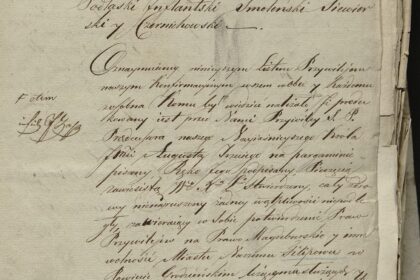 Podlaski Inflantski Smolenski Siewier-
ski y Czernichowski.
Oznaymuiemy ninieyszym Listem Przywilejem
naszym Konfirmacyinym wszem wobec y każdemu
zosobna komu by wiedzieć należało iż produ-
kowany iest przed Nami Przywiley S. P.
Przodka naszego Nayiaśnieyszego Króla
Jmci Augusta Trzeciego na pargaminie
pisany Ręką Jego podpisany Pieczęcią
zawiesistą W. X. L. stwierdzony, cały zdro-
wy nienaruszony żadney wątpliwości niepodle-
gły, zawieraiący w sobie potwierdzenie Praw
Przywilejow na Prawo Magdeburskie y inne
wolności Miastu Naszemu Filipowu w
Powiecie Grodzieńskim leżącemu służących